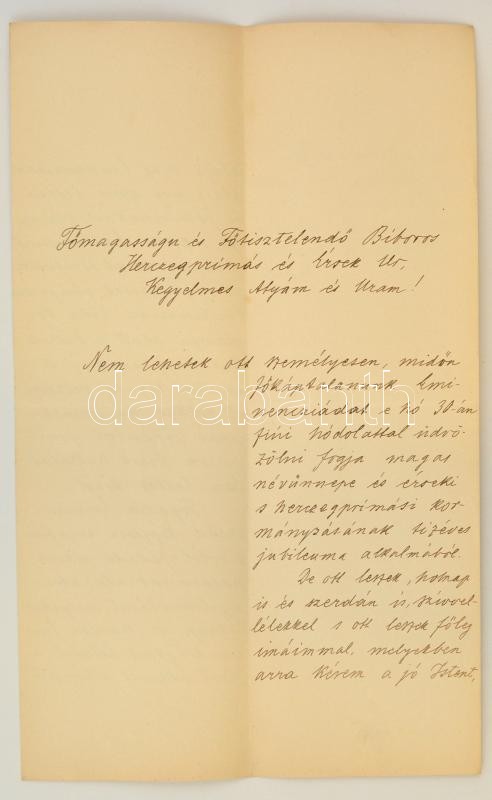 Főmagasságu és Főtisztelendő Biboros
Herczegprímás és Érsek Ur,
Kegyelmes Atyám és Uram!
Nem lehetek ott személyesen, midőn
főkáptalanunk Emi-
nencziádat e hó 30-án
fiúi hódolattal üdvö-
zölni fogja magas
névünnepe és érseki
s herczegprímási kor-
mányzásának tizéves
jubileuma alkalmából.
De ott leszek, holnap
is és szerdán is, szívvel-
lélekkel s ott leszek főleg
imáimmal, melyekben
arra kérem a jó Istent,
darabanth